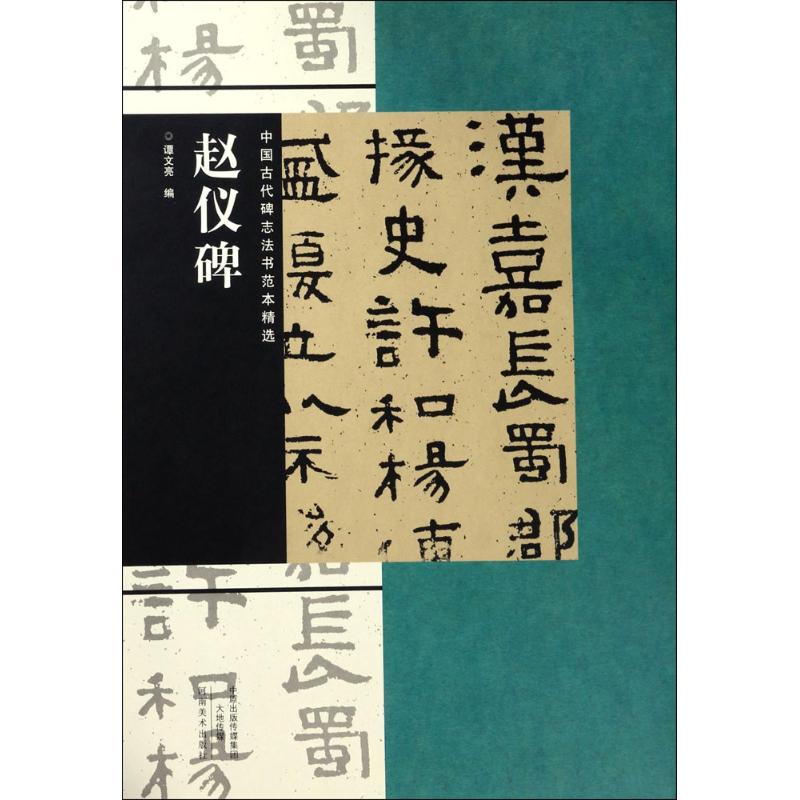 漢嘉長蜀郡
掾史許和楊
盛復立以示
中国古代碑志法书范本精选
赵仪碑
◎谭文亮 编
蜀
和楊
長蜀
許和楊
中原出版传媒集团
大地传媒
河南美术出版社